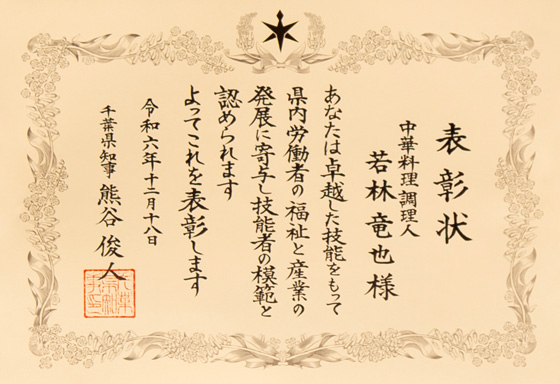 表彰状
中華料理調理人
若林竜也様
あなたは卓越した技能をもって
県内労働者の福祉と産業の
発展に寄与し技能者の模範と
認められます
よってこれを表彰します
令和六年十二月十八日
千葉県知事 熊谷俊人